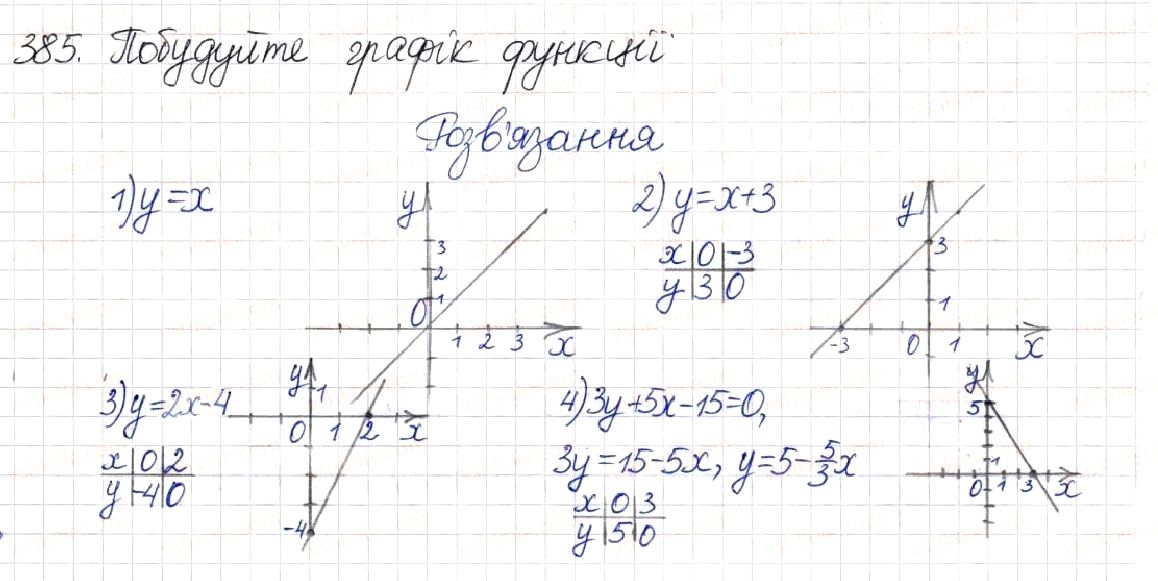 385. Побудуйте графік функції
Розв'язання
1) y = x
y
3
2
1
0
1 2 3 x
2) y = x+3
x | 0 | -3
y | 3 | 0
y
3
1
-3 0 1 x
3) y = 2x-4
x | 0 | 2
y | -4 | 0
y
1
0 1 2 x
-4
4) 3y+5x-15=0,
3y = 15-5x, y = 5 - 5/3 x
x | 0 | 3
y | 5 | 0
y
5
1
0 1 3 x